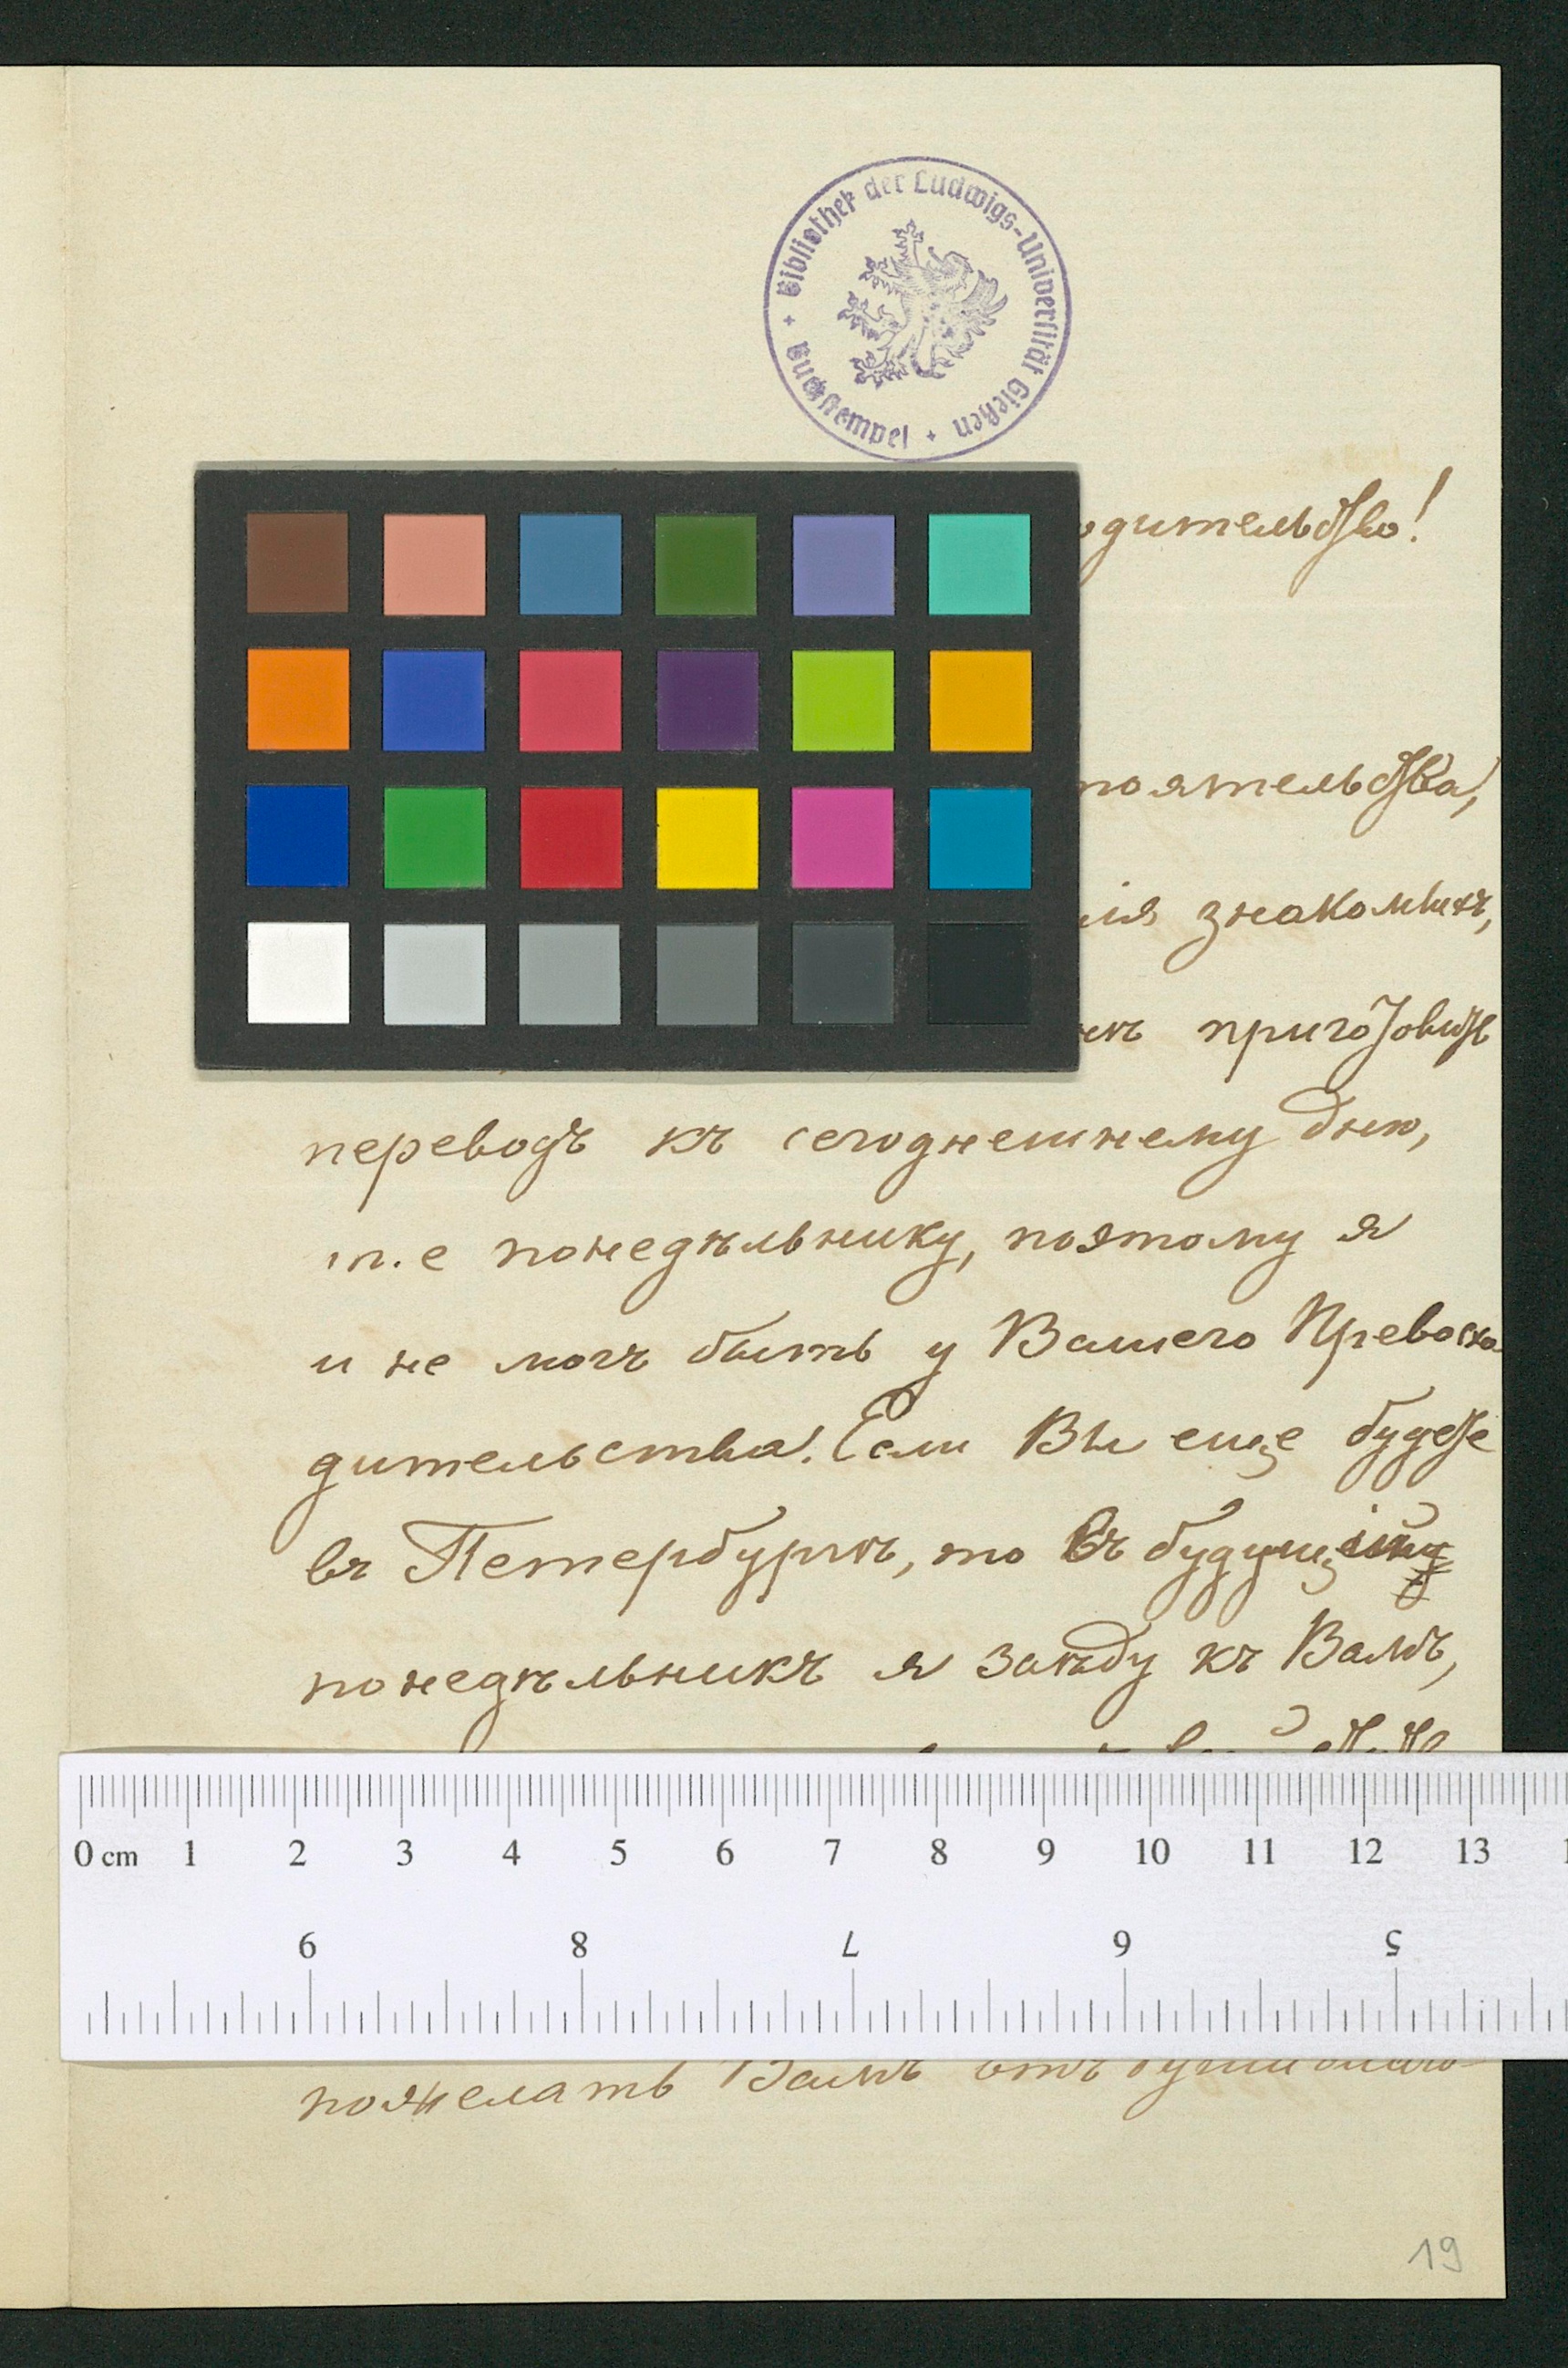 Bibliothek der Ludwigs-Universität Gießen + Buchstempel +
одительство!
тоятельства,
знакомыхъ,
приготовить
переводъ къ сегоднешнему дню,
т.е понедѣльнику, поэтому я
и не могъ быть у Вашего Превосхо
дительства. Если Вы еще будете
въ Петербургѣ, то въ будущій
понедѣльникъ я заѣду къ Вамъ,
0 cm 1 2 3 4 5 6 7 8 9 10 11 12 13
9 8 7 6 5
пожелать Вамъ отъ души
19